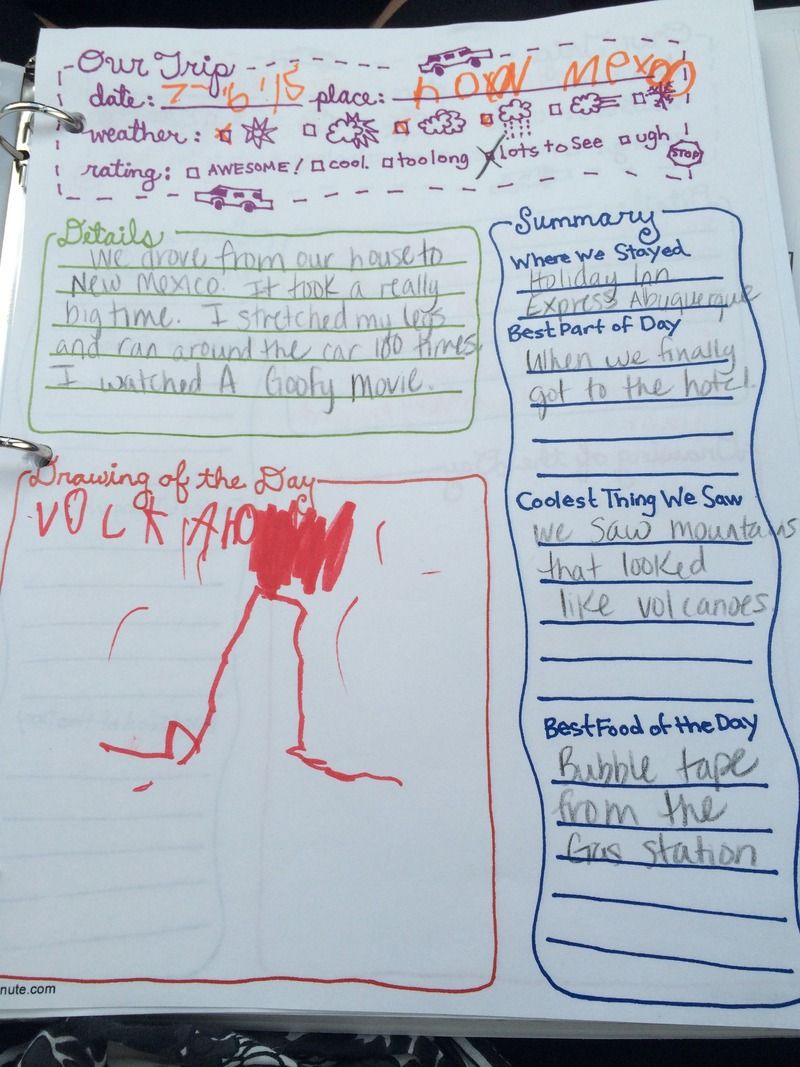 Our Trip
date: 7-6'15 place:
weather:
rating: AWESOME! cool. too long lots to see ugh STOP
Details
We drove from our house to
New Mexico. It took a really
big time. I stretched my legs
and ran around the car 100 times.
I watched A Goofy Movie.
Summary
Where We Stayed
Holiday Inn
Express Abuquerque
Best Part of Day
When we finally
got to the hotel.
Coolest Thing We Saw
We saw mountains
that looked
like volcanoes.
Best Food of the Day
Bubble tape
from the
Gas station
Drawing of the Day
nute.com